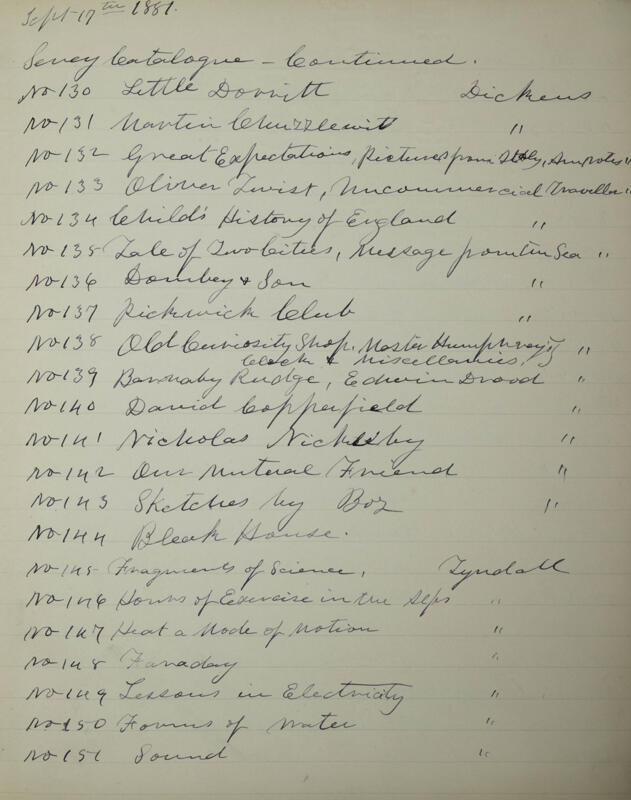 Sept 17th 1881.
Catalogue - Continued.
No 130 Little Dorritt Dickens
No 131 Martin Chuzzlewitt "
No 132 Great Expectations, Pictures from Italy, Am notes "
No 133 Oliver Twist, Uncommercial Traveller "
No 134 Child's History of England "
No 135 Tale of Two Cities, Message from the Sea "
No 136 Dombey & Son "
No 137 Pickwick Club "
No 138 Old Curiosity Shop, Master Humphrey's "
Clock & Miscellanies,
No 139 Barnaby Rudge, Edwin Drood "
No 140 David Copperfield "
No 141 Nicholas Nickleby "
No 142 Our Mutual Friend "
No 143 Sketches by Boz "
No 144 Bleak House.
No 145 Fragments of Science, Tyndall
No 146 Hours of Exercise in the Alps "
No 147 Heat a Mode of Motion "
No 148 Faraday "
No 149 Lessons in Electricity "
No 150 Forms of Water "
No 151 Sound "